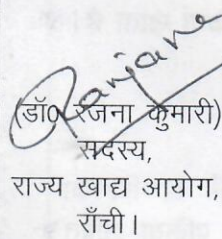 Ranjana
(डॉ० रंजना कुमारी)
सदस्य,
राज्य खाद्य आयोग,
राँची।